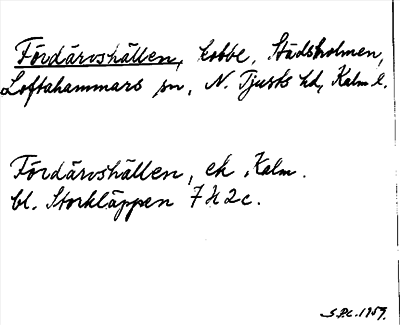 Fördärvshällen, kobbe, Städsholmen,
Loftahammars sn, N. Tjusts hd, Kalm. l.
Fördärvshällen, ek. Kalm.
bl. Storkläppen 7 H 2 c.
S.P.C. 1959.